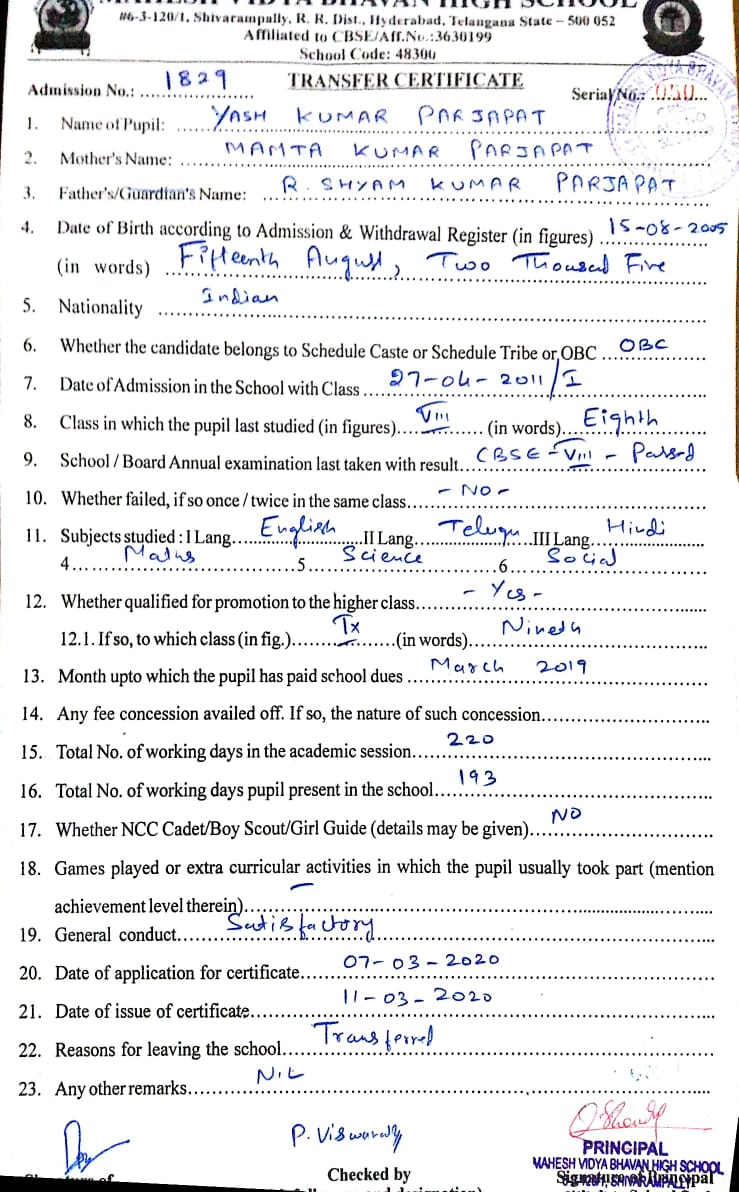 MAHESH VIDYA BHAVAN HIGH SCHOOL
#6-3-120/1, Shivarampally, R. R. Dist., Hyderabad, Telangana State – 500 052
Affiliated to CBSE/Aff.No.:3630199
School Code: 48300
TRANSFER CERTIFICATE
Admission No.: 1829
Serial No.: 050
1. Name of Pupil: YASH KUMAR PARJAPAT
2. Mother's Name: MAMTA KUMAR PARJAPAT
3. Father's/Guardian's Name: R. SHYAM KUMAR PARJAPAT
4. Date of Birth according to Admission & Withdrawal Register (in figures) 15-08-2005
(in words) Fifteenth August, Two Thousad Five
5. Nationality Indian
6. Whether the candidate belongs to Schedule Caste or Schedule Tribe or OBC OBC
7. Date of Admission in the School with Class 27-04-2011/I
8. Class in which the pupil last studied (in figures) VIII (in words) Eighth
9. School / Board Annual examination last taken with result CBSE - VIII - Passed
10. Whether failed, if so once / twice in the same class - NO -
11. Subjects studied : I Lang. English II Lang. Telugu III Lang. Hindi
4 Maths 5 Science 6 Social
12. Whether qualified for promotion to the higher class - Yes -
12.1. If so, to which class (in fig.) IX (in words) Nineth
13. Month upto which the pupil has paid school dues March 2019
14. Any fee concession availed off. If so, the nature of such concession
15. Total No. of working days in the academic session 220
16. Total No. of working days pupil present in the school 193
17. Whether NCC Cadet/Boy Scout/Girl Guide (details may be given) NO
18. Games played or extra curricular activities in which the pupil usually took part (mention
achievement level therein) -
19. General conduct Satisfactory
20. Date of application for certificate 07-03-2020
21. Date of issue of certificate 11-03-2020
22. Reasons for leaving the school Transferred
23. Any other remarks NIL
PRINCIPAL
MAHESH VIDYA BHAVAN HIGH SCHOOL
Checked by
Signature of Principal